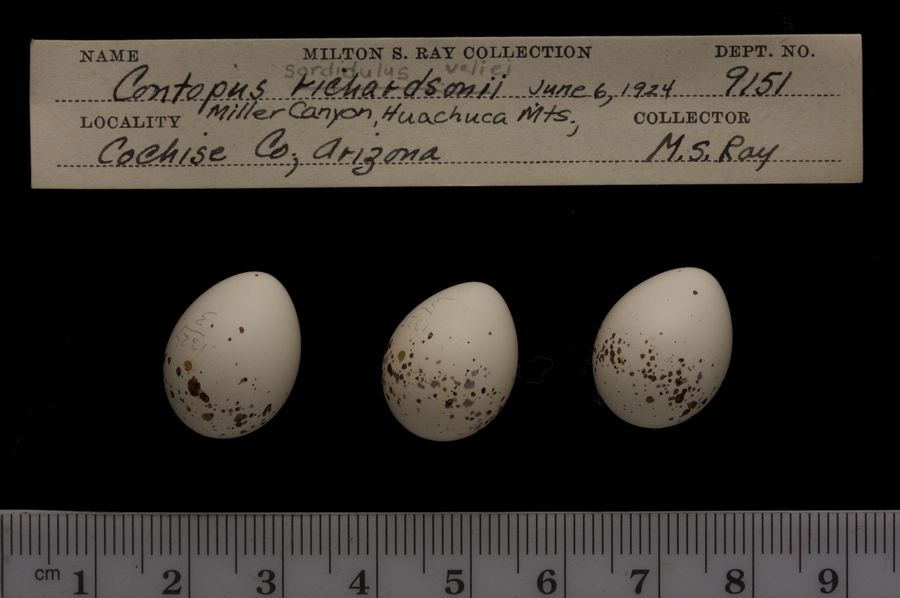 NAME MILTON S. RAY COLLECTION DEPT. NO.
sordidulus veliei
Contopus richardsonii June 6, 1924 9151
LOCALITY Miller Canyon, Huachuca Mts., COLLECTOR
Cochise Co., Arizona M.S. Ray
cm 1 2 3 4 5 6 7 8 9